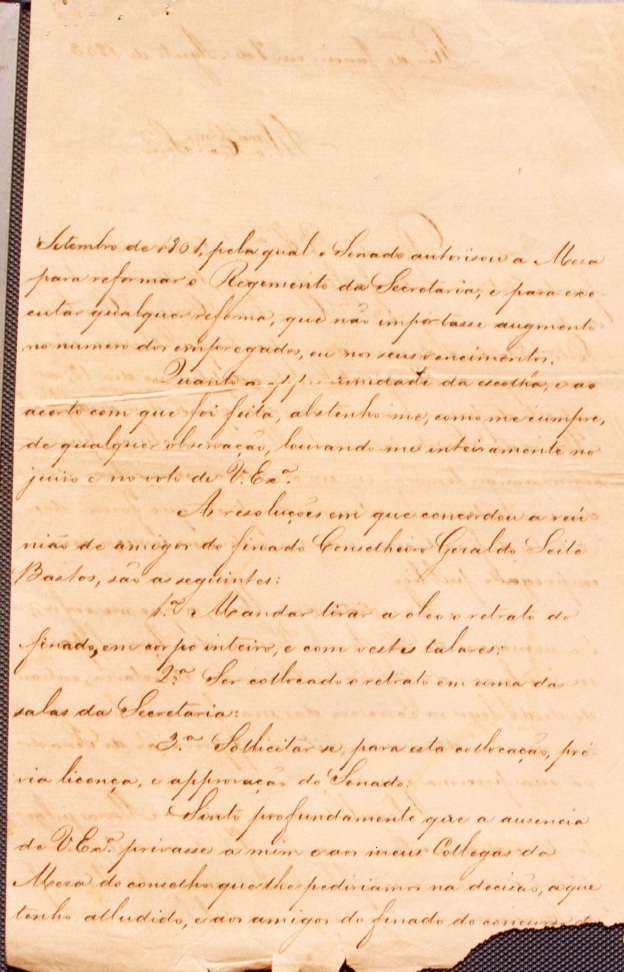 Setembro de 1301, pela qual o Senado autorisou a Mesa
para reformar o Regimento da Secretaria, e para exe-
cutar qualquer reforma, que não importasse augmento
no numero dos empregados, ou nos seus vencimentos.
Quanto a unidade da escolha, e ao
acerto com que foi feita, abstenho me, como me cumpre,
de qualquer observação, louvando me inteiramente no
juizo e no voto de V. Exª.
As resoluções em que concordou a reu
nião de amigos do finado Conselheiro Geraldo Leite
Bastos, são as seguintes:
1.ª Mandar tirar a oleo o retrato do
finado, em corpo inteiro, e com vestes talares:
2.ª Ser collocado o retrato em uma das
salas da Secretaria:
3.ª Sollicitar se, para esta collocação, pré
via licença, e approvação do Senado.
Sinto profundamente que a ausencia
de V. Exª. privasse a mim e aos meus Collegas da
Mesa do conselho que lhe pediriamos na decisão, a que
tenho alludido, e aos amigos do finado do concurso